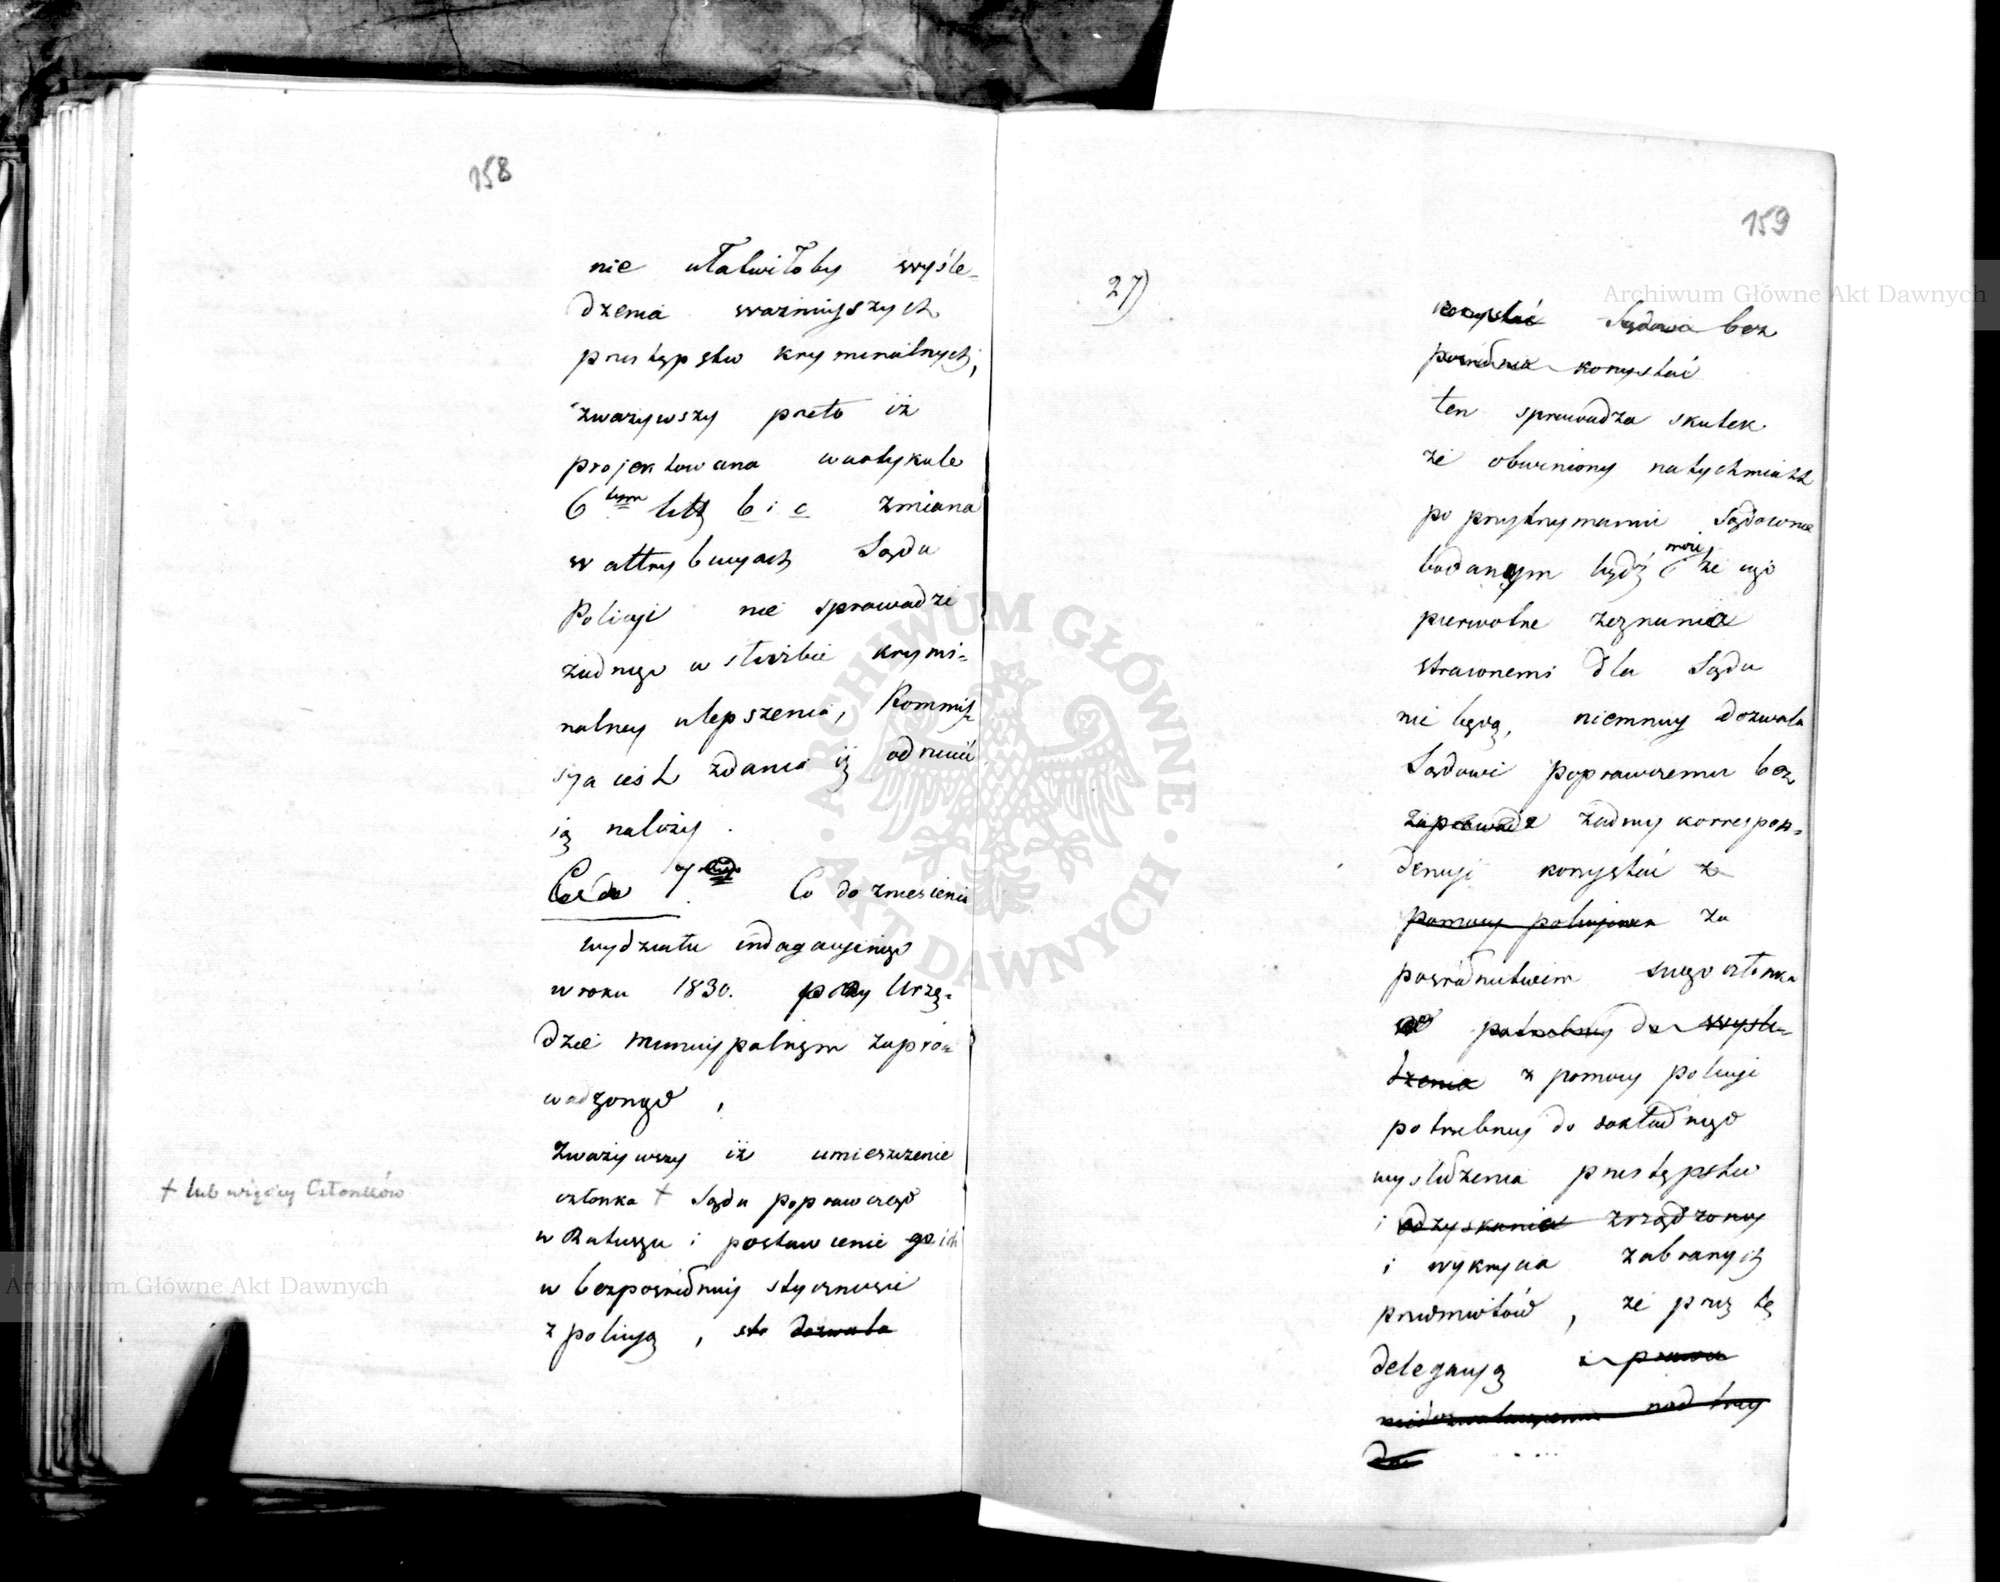 158
nie ułatwiłoby wyśle-
dzenia ważniejszych
przestępstw kryminalnych,
zważywszy przeto iż
projektowana w artykule
6tym litt b i c zmiana
w attrybucyach Sądu
Policyi nie sprowadzi
żadnego w służbie krymi-
nalney ulepszenia, Kommis-
sya iest zdania iż odrzucić
ią należy.
Co do 7 Co do zniesienia
wydziału indagacyinego
w roku 1830. przy Urzę-
dzie Municypalnym zapro-
wadzonego,
Zważywszy iż umieszczenie
członka + Sądu poprawczego
w Ratuszu i postawienie go ich
w bezpośredniey styczności
z policyą, dozwala
+ lub więcey Członków
159
27)
korzystać Sądowi bez
pośrednio korzystać
ten sprowadza skutek
że obwiniony natychmiast
po przytrzymaniu Sądownie
badanym bydź może że iego
pierwotne zeznania
straconemi dla Sądu
nie będą, niemniey dozwala
Sądowi poprawczemu bez
żadney korrespon-
dencyi korzystać z
pomocy policyjnea za
pośrednictwem swego członka
potrzebney do wyśle-
dzenia z pomocy policyi
potrzebney do dokładnego
wyśledzenia przestępstw
i odzyskania zrządzoney
i wykrycia zabranych
przedmiotów, że przez tę
delegacyą i prawa
nad trzy
dni
Archiwum Główne Akt Dawnych
Archiwum Główne Akt Dawnych
ARCHIWUM GŁÓWNE AKT DAWNYCH